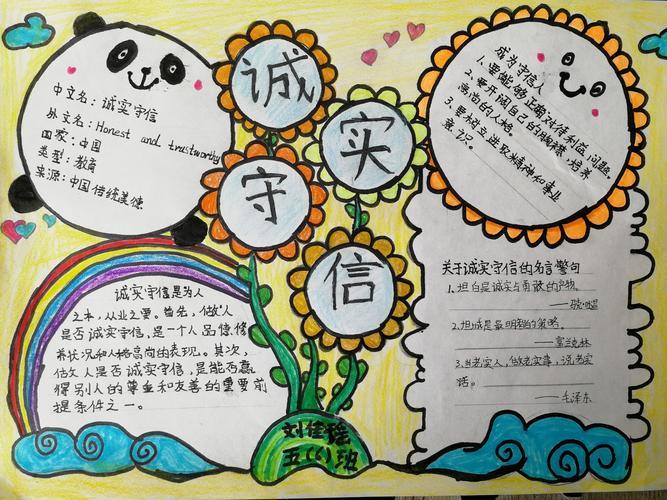 诚
实
守
信
中文名：诚实守信
外文名：Honest and trustworthy
国家：中国
类型：教育
来源：中国传统美德
成为守信人
1.要能够正确对待利益问题。
2.要开阔自己的胸襟，培养
高尚的人格。
3.要树立进取精神和事业
意识。
诚实守信是为人
之本，从业之要。首先，做人
是否诚实守信，是一个人品德修
养状况和人格高尚的表现。其次，
做人是否诚实守信，是能否赢
得别人的尊重和友善的重要前
提条件之一。
关于诚实守信的名言警句
1.坦白是诚实与勇敢的产物。
2.坦诚是最明智的策略。
——富兰克林
3.当老实人，做老实事，说老实
话。
——毛泽东
刘佳瑶
五(1)班